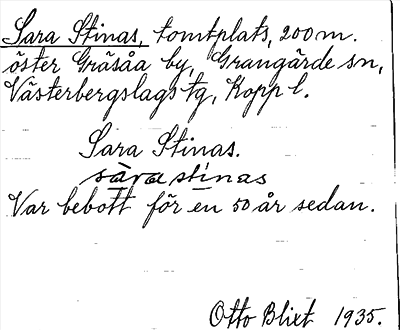 Sara Stinas, tomtplats, 200 m.
öster Gräsåa by, Grangärde sn,
Västerbergslags tg, Kopp l.
Sara Stinas.
sàra stinas
Var bebott för en 50 år sedan.
Otto Blixt 1935.